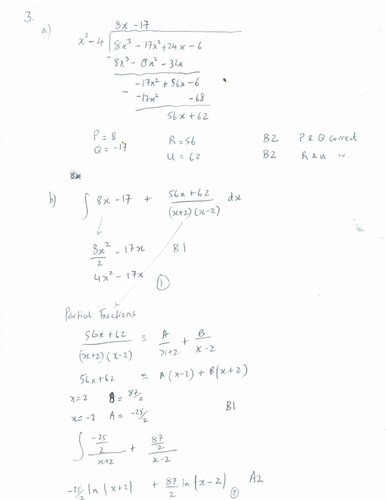 3.
a)
8x - 17
x² - 4 | 8x³ - 17x² + 24x - 6
8x³ - 0x² - 32x
-17x² + 56x - 6
- -17x² - 68
56x + 62
P = 8 R = 56 B2 P & Q correct
Q = -17 U = 62 B2 R & U "
8x
b) ∫ 8x - 17 + 56x + 62 / (x+2)(x-2) dx
8x²/2 - 17x B1
4x² - 17x ①
Partial Fractions
56x + 62 / (x+2)(x-2) = A/x+2 + B/x-2
56x + 62 = A(x-2) + B(x+2)
x = 2 B = 87/2
x = -2 A = -25/2 B1
∫ -25/2 / x+2 + 87/2 / x-2
-25/2 ln(x+2) + 87/2 ln(x-2) ② A2